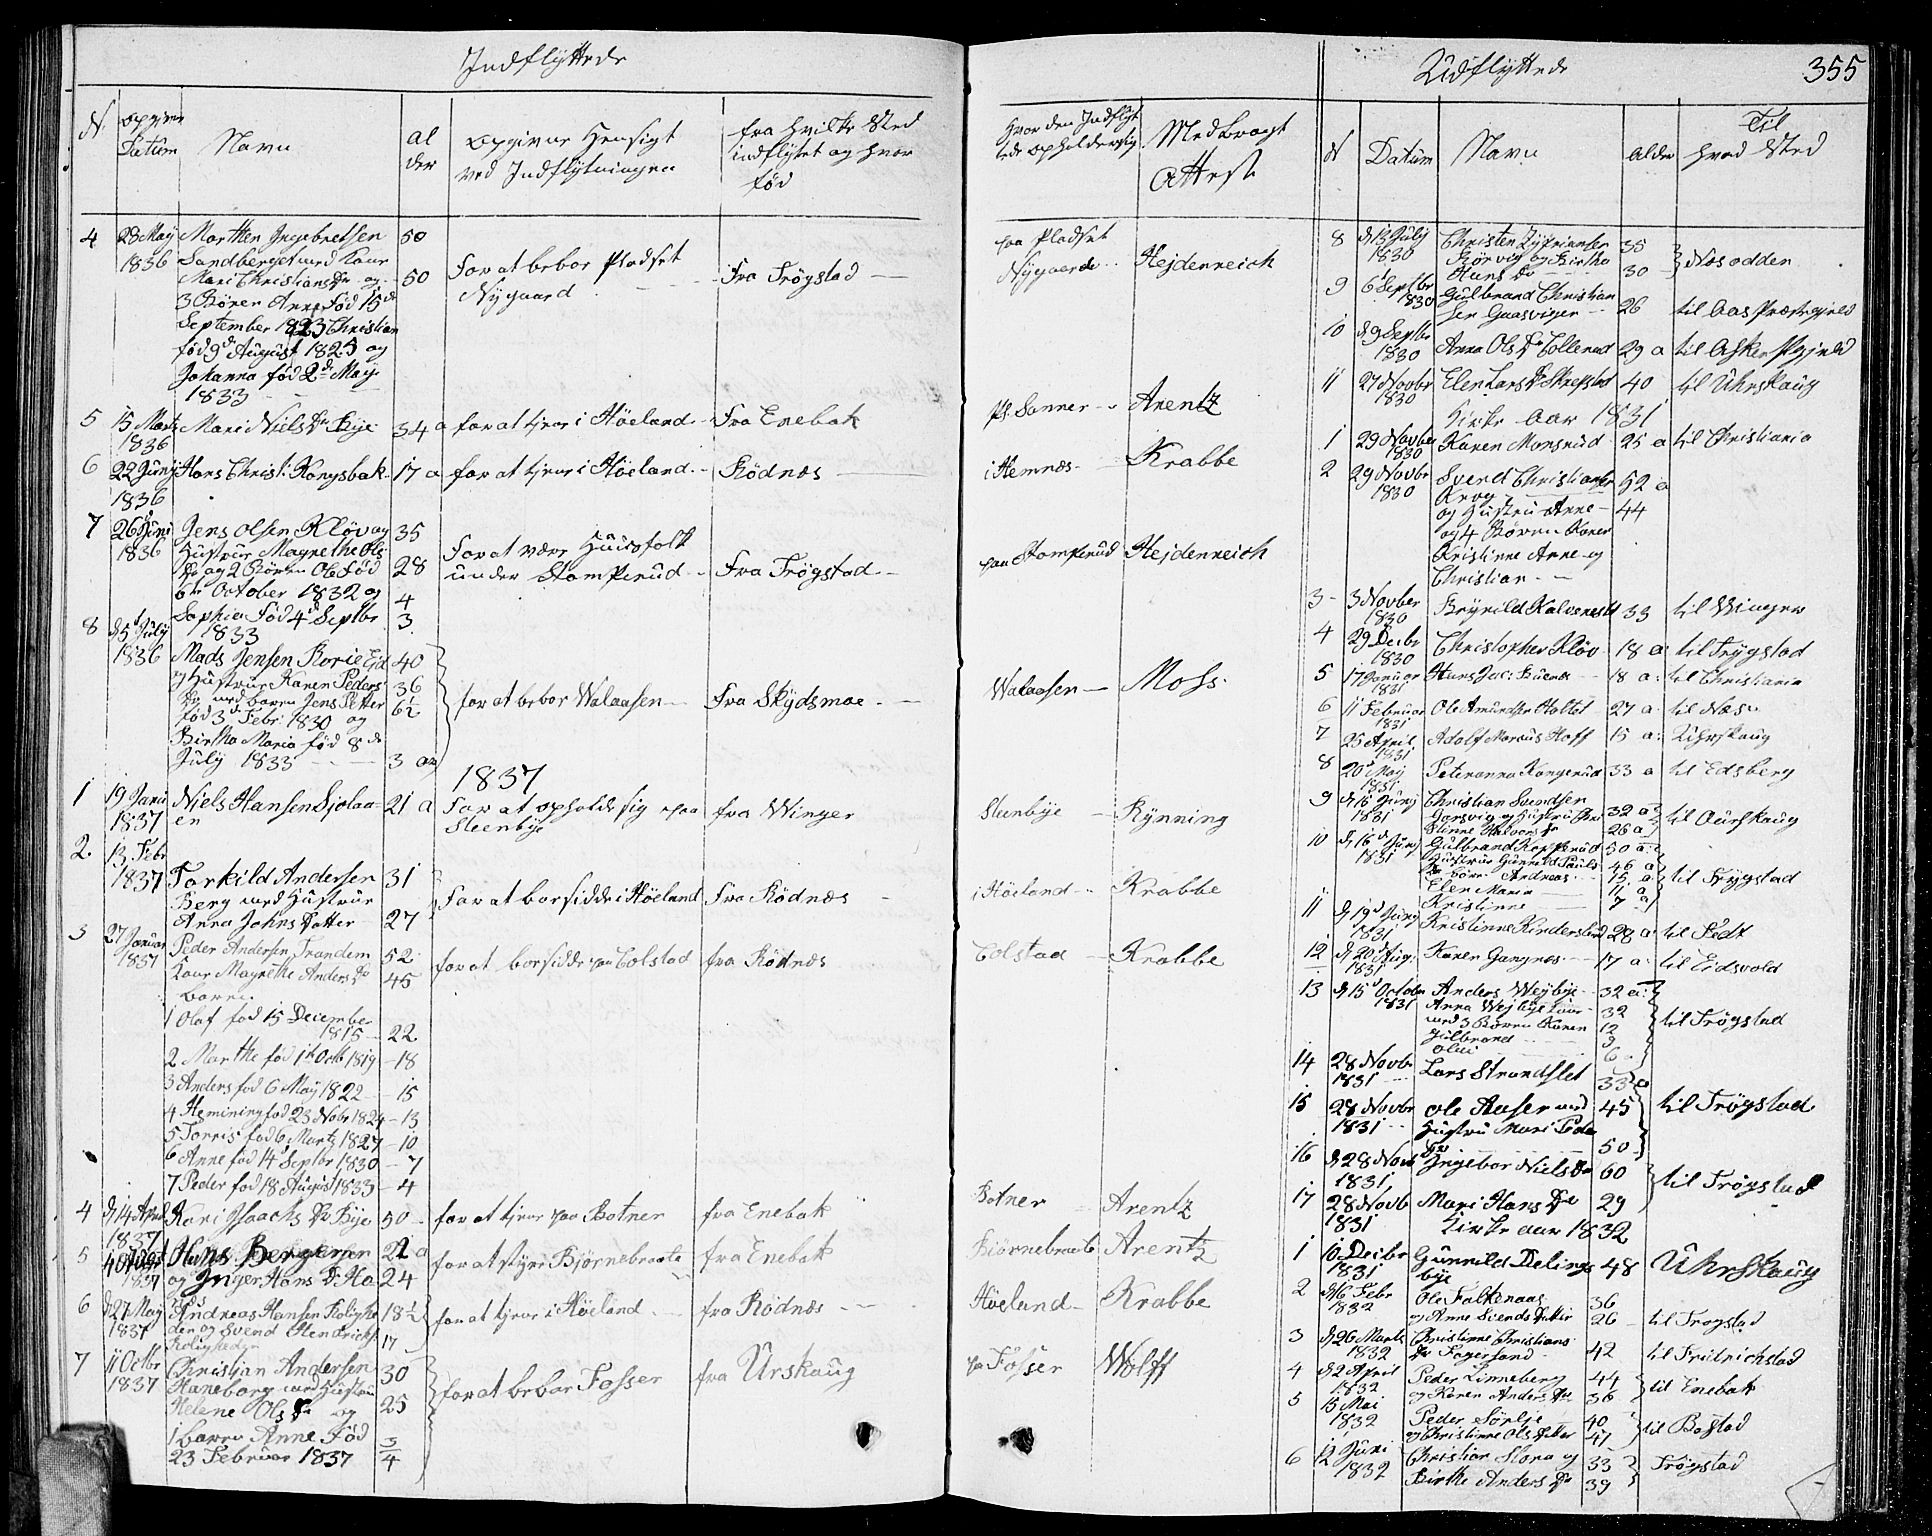 Indflyttede
N.
opgivne Datum
Navn
Alder
opgivne Hensigt ved Indflytningen
fra hvilke Sted indflyttet og hvor fød
Hvor den Indflyttede opholder sig
Medbragt Attest
4
28 May 1836
Marthen Ingebretsen 50
Sandberget med Kone
Mari Christians Dr og 50
3 Børn Anne Fød 15de
September 1823 Christian
fød 9d August 1825 og
Johanna fød 2d May
1833
For at beboe Pladset Nygaard
Fra Trøgstad
paa Pladset Nygaard
Hejdenreich
5
15 Martz 1836
Mari Niels Dr Bye 34 a
for at tjene i Høeland
Fra Enebak
Pl. Sonner
Arentz
6
22 Juny 1836
Hans Christ: Kongsbak 17 a
for at tjene i Høeland
Rødnæs
i Hemnæs
Krabbe
7
26 Juni 1836
Jens Olsen Kløv og 35
Hustrue Magrethe Ols
Dr og 2 Børn Ole Fød 28
6te October 1832 og 4
Sophia Fød 4d Septbr 3
1833
For at være Huusfolk under Stomperud
Fra Trøgstad
paa Stomperud
Hejdenreich
8
d 5 July 1836
Mads Jensen Borie Eid 40
og Hustrue Karen Peders 36
Dr med børn Jens Petter 6½
fød 3d Febr: 1830 og
Birthe Maria fød 8de
July 1833 3 aar
for at beboe Walaasen
Fra Skydsmoe
Walaasen
Moss
1837
1
19 Janu 1837
Niels Hansen Sjolaaen 21 a
For at opholde sig paa Steenbye
fra Winger
Steenbye
Rynning
2.
13 Febr 1837
Torkild Andersen 31
Berg med Hustrue
Anna Johns Datter 27
For at bosidde i Høeland
Fra Rødnæs
i Høeland
Krabbe
3
27 Januar 1837
Peder Andersen Trandem 52
Kone Magrethe Anders Dr 45
børn
1 Olaf fød 15 December
1815 22
2 Marthe fød 1te Octb 1819 18
3 Anders fød 6 May 1822 15
4 Hemining fød 23 Nobr 1824 13
5 Torris fød 6 Martz 1827 10
6 Anne fød 14 Septbr 1830 7
7 Peder fød 18 August 1833 4
for at bosidde paa Tolstad
fra Rødnæs
Tolstad
Krabbe
4
d 14 April 1837
Kari Isaachs Dr Bye 50
for at tjene paa Botner
fra Enebak
Botner
Arentz
5
1837
Hans Bergersen 22 a
og Inger Hans Dr Ha 24
for at styre Bjørnebraate
fra Enebak
Biørnebraate
Arentz
6
d 27 May 1837
Andreas Hansen 18½
og Svend Hendrichs 17
for at tjene i Høeland
fra Rødnæs
Høeland
Krabbe
7
11 Octbr 1837
Christian Andersen 30
Haneborg med Hustrue
Helene Ols Dr og 25
1 barn Anne Fød
23 Februar 1837 3/4
for at beboe Fosser
fra Urskaug
paa Fosser
Wolff
Udflyttede
355
N
Datum
Navn
Alder
Til hvad Sted
8
d 13 July 1830
Christen Zyfriansen 35
Børvig og Birthe
Hans Dr 30
Næsodden
9
6 Septbr 1830
Gulbrand Christian
sen Gaasvigen 26
til Aas Præstegjeld
10
d 9 Septbr 1830
Anna Ols Dr Tollerud 29 a
til Asker Pgjeld
11
27 Novbr 1830
Elen Lars Dr Skrepstad 40
til Uhrskaug
Kirke Aar 1831
1
29 Novber 1830
Karen Monsrud 25 a
til Christiania
2
29 Novbr 1830
Svend Christiansen 52 a
Krog
og Hustru Anne 44
og 4 Børn Karen
Kristinne Anne og
Christian
3
3 Novber 1830
Brynild Kalvenes 33
til Winger
4
29 Decbr 1830
Christopher Kløv 18 a
til Trygstad
5
17 Januar 1831
Hans Jac: Buer 18 a:
til Christiania
6
11 Februar 1831
Ole Amundsen Holtet 27 a
til Næs
7
25 April 1831
Adolf Marcus Hoff 15 a:
Uhrskaug
8
20 May 1831
Peteranna Kongerud 33 a
til Edsberg
9
d 16 Juny 1831
Christian Svendsen 32 a
Gorsvig og Hustrue
Stinne Halvors Dr 26 a
til Aurskaug
10
d 16d Juny 1831
Gulbrand Kopperud 50 a
Hustrue Gunnild Pauls 46 a
Dr børn Andreas 15 a
Elen Maria 11 a
Kristinne 7 a
til Trygstad
11
d 19d Juny 1831
Kristinne Kinderslund 28 a
til Fedt
12
d 20d Aug. 1831
Karen Gangnes 17 a
til Eidsvold
13
d 15 October 1831
Anders Wejbye 32 a
Anna Wejbye kone 32
med 3 Børn Karen 12
Gulbrand 9
Olui 6
til Trøgstad
14
28 Novbr 1831
Lars Strandslet 33 a
15
28 Novbr 1831
Ole Haser med 45
Hustru Mari Peder
Dr 50
til Trøgstad
16
d 28 Novb 1831
Ingebor Niels Dr 60
17
28 Novb 1831
Mari Hans Dr 29
til Trøgstad
Kirke aar 1832
1
10 Decbr 1831
Gunnild Delingsbye 48
Uhrskaug
2
d 16 Febr 1832
Ole Falkenaas 36
og Anne Svends Datter 26
til Trøgstad
3
d 26 Marts 1832
Christinne Christians
Dr Fagersand 42
til Fridrichstad
4
d 2 April 1832
Peder Linneberg 44
og Karen Anders Dr 36
til Enebak
5
15 Mai 1832
Peder Sørlje 40
og Christinne Ols Datter 47
til Bastad
6
12 Juni 1832
Christian Slora og 33
Birthe Anders Dr 39
Trøgstad